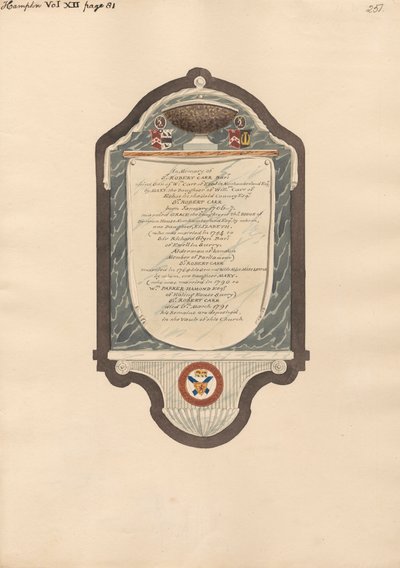 Hampton Vol XII page 81
251
In Memory of
Sr. ROBERT CARR Bart
of Etal in Northumberland Esqr
by MARY, the Daughter of Willm Carr of
Sr. ROBERT CARR
born January 1706-7,
married GRACE the Daughter of
one Daughter, ELIZABETH,
(who was married in 1754 to
Sir Richard Glyn Bart
of Ewell in Surry,
Alderman of London
Member of Parliament)
Sr. ROBERT CARR
married in
by whom, one Daughter MARY.
(who was married in 1790 to
Wm. PARKER HAMOND Esqr
of Haling House Surry)
Sr. ROBERT CARR
died March 1791
his Remains are deposited,
in the Vault of this Church